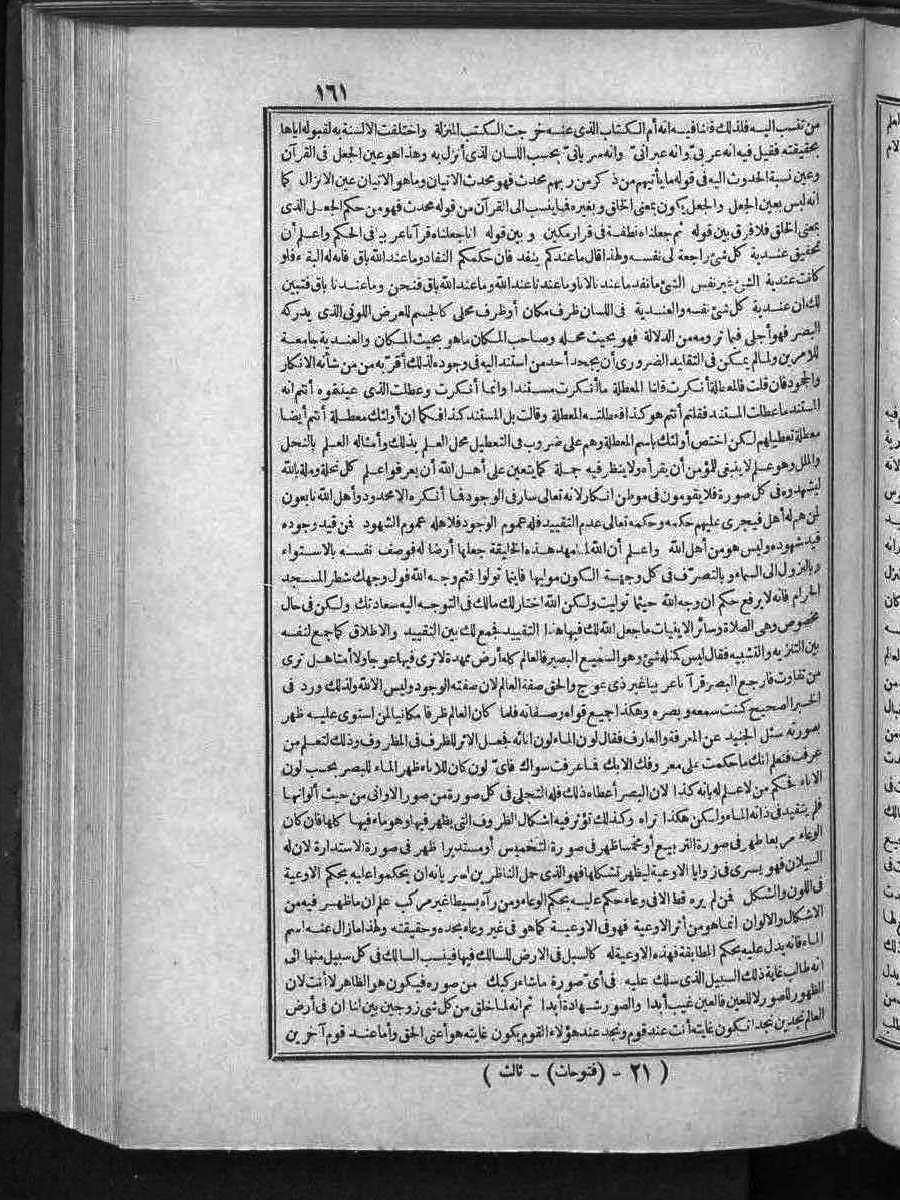 ١٦١
من تنسب اليه فلذلك قلنا فيه انه أم الكتاب الذى عنه خرجت الكتب المنزلة واختلفت الالسنة به لقبوله اياها
بحقيقته فقيل فيه انه عربىّ وانه عبرانىّ وانه سريانىّ بحسب اللسان الذى أنزل به وهذا هو عين الجعل فى القرآن
وعين نسبة الحدوث اليه فى قوله ما يأتيهم من ذكر من ربهم محدث فهو محدث الاتيان وما هو الاتيان عين الانزال كما
انه ليس بعين الجعل والجعل يكون بمعنى الخلق وبغيره فما ينسب الى القرآن من قوله محدث فهو من حكم الجعل الذى
بمعنى الخلق فلا فرق بين قوله ثم جعلناه نطفة فى قرار مكين وبين قوله انا جعلناه قرآنا عربيا فى الحكم واعلم أن
تحقيق عندية كل شئ راجعة الى نفسه ولهذا قال ما عندكم ينفد فان حكمكم النفاد وما عند الله باق فانه له البقاء فلو
كانت عندية الشئ غير نفس الشئ ما نفد ما عندنا لانا وما عندنا عند الله وما عند الله باق فنحن وما عندنا باق فتبين
لك ان عندية كل شئ نفسه والعندية فى اللسان ظرف مكان أو ظرف محلى كالجسم للعرض اللونى الذى يدركه
البصر فهو أجلى فيما ترومه من الدلالة فهو بحيث محله وصاحب المكان ما هو بحيث المكان والعندية جامعة
للامرين ولما لم يمكن فى التقليد الضرورى أن يجحد أحد من استند اليه فى وجوده لذلك أقرّ به من من شأنه الانكار
والجحود فان قلت فالمعطلة أنكرت قلنا المعطلة ما أنكرت مستندا وانما أنكرت وعطلت الذى عينتموه أنتم انه
المستند ما عطلت المستند فقلتم أنتم هو كذا فعطلته المعطلة وقالت بل المستند كذا فكما ان أولئك معطلة أنتم أيضا
معطلة تعطيلهم لكن اختص أولئك باسم المعطلة وهم على ضروب فى التعطيل محل العلم بذلك وأمثاله العلم بالنحل
والملل وهو علم لا ينبغى للمؤمن أن يقرأه ولا ينظر فيه جملة كما يتعين على أهل الله أن يعرفوا علم كل نحلة وملة بالله
ليشهدوه فى كل صورة فلا يقومون فى موطن انكار لانه تعالى سار فى الوجود فما أنكره الا محدود وأهل الله تابعون
لمن هم له أهل فيجرى عليهم حكمه وحكمه تعالى عدم التقييد فله عموم الوجود فلاهله عموم الشهود فمن قيد وجوده
قيد شهوده وليس هو من أهل الله واعلم أن الله لما مهد هذه الخليقة جعلها أرضا له فوصف نفسه بالاستواء
وبالنزول الى السماء وبالتصرّف فى كل وجهة الكون موليها فاينما تولوا فثم وجه الله فول وجهك شطر المسجد
الحرام فانه لا يرفع حكم ان وجه الله حيثما توليت ولكن الله اختار لك مالك فى التوجه اليه سعادتك ولكن فى حال
مخصوص وهى الصلاة وسائر الاينيات ما جعل الله لك فيها هذا التقييد فجمع لك بين التقييد والاطلاق كما جمع لنفسه
بين التنزيه والتشبيه فقال ليس كمثله شئ وهو السميع البصير فالعالم كله أرض ممهدة لا ترى فيها عوجا ولا أمتا هل ترى
من تفاوت فارجع البصر قرآنا عربيا غير ذى عوج والحق صفة العالم لان صفته الوجود وليس الا الله ولذلك ورد فى
الخبر الصحيح كنت سمعه وبصره وهكذا جميع قواه وصفاته فلما كان العالم ظرفا مكانيا لمن استوى عليه ظهر
بصورته سئل الجنيد عن المعرفة والعارف فقال لون الماء لون انائه فجعل الاثر للظرف فى المظروف وذلك لتعلم من
عرفت فتعلم انك ما حكمت على معروفك الا بك فما عرفت سواك فاىّ لون كان للاناء ظهر الماء للبصر بحسب لون
الاناء فحكم من لا علم له بانه كذا لان البصر أعطاه ذلك فله التجلى فى كل صورة من صور الاوانى من حيث ألوانها
فلم يتقيد فى ذاته الماء ولكن هكذا تراه وكذلك تؤثر فيه اشكال الظروف التى يظهر فيها وهو ماء فيها كلها فان كان
الوعاء مربعا ظهر فى صورة التربيع أو مخمسا ظهر فى صورة التخميس أو مستديرا ظهر فى صورة الاستدارة لان له
السيلان فهو يسرى فى زوايا الاوعية ليظهر تشكلها فهو الذى حمل الناظرين لسريانه ان يحكموا عليه بحكم الاوعية
فى اللون والشكل فمن لم يره قط الا فى وعاء حكم عليه بحكم الوعاء ومن رآه بسيطا غير مركب علم ان ما ظهر فيه من
الاشكال والالوان انما هو من أثر الاوعية فهو فى الاوعية كما هو فى غير وعاء بحده وحقيقته ولهذا ما زال عنه اسم
الماء فانه يدل عليه بحكم المطابقة فهذه الاوعية له كالسبل فى الارض للسالك فيها فينسب السالك فى كل سبيل منها الى
انه طالب غاية ذلك السبيل الذى سلك عليه فى أىّ صورة ما شاء ركبك من صوره فيكون هو الظاهر لا أنت لان
الظهور للصور لا للعين فالعين غيب أبدا والصور شهادة أبدا ثم انه لما خلق من كل شئ زوجين بين لنا ان فى أرض
العالم نجدين نجدا تكون غايته أنت عند قوم ونجد عند هؤلاء القوم يكون غايته هو أعنى الحق وأما عند قوم آخرين
( ٢١ - (فتوحات) - ثالث )